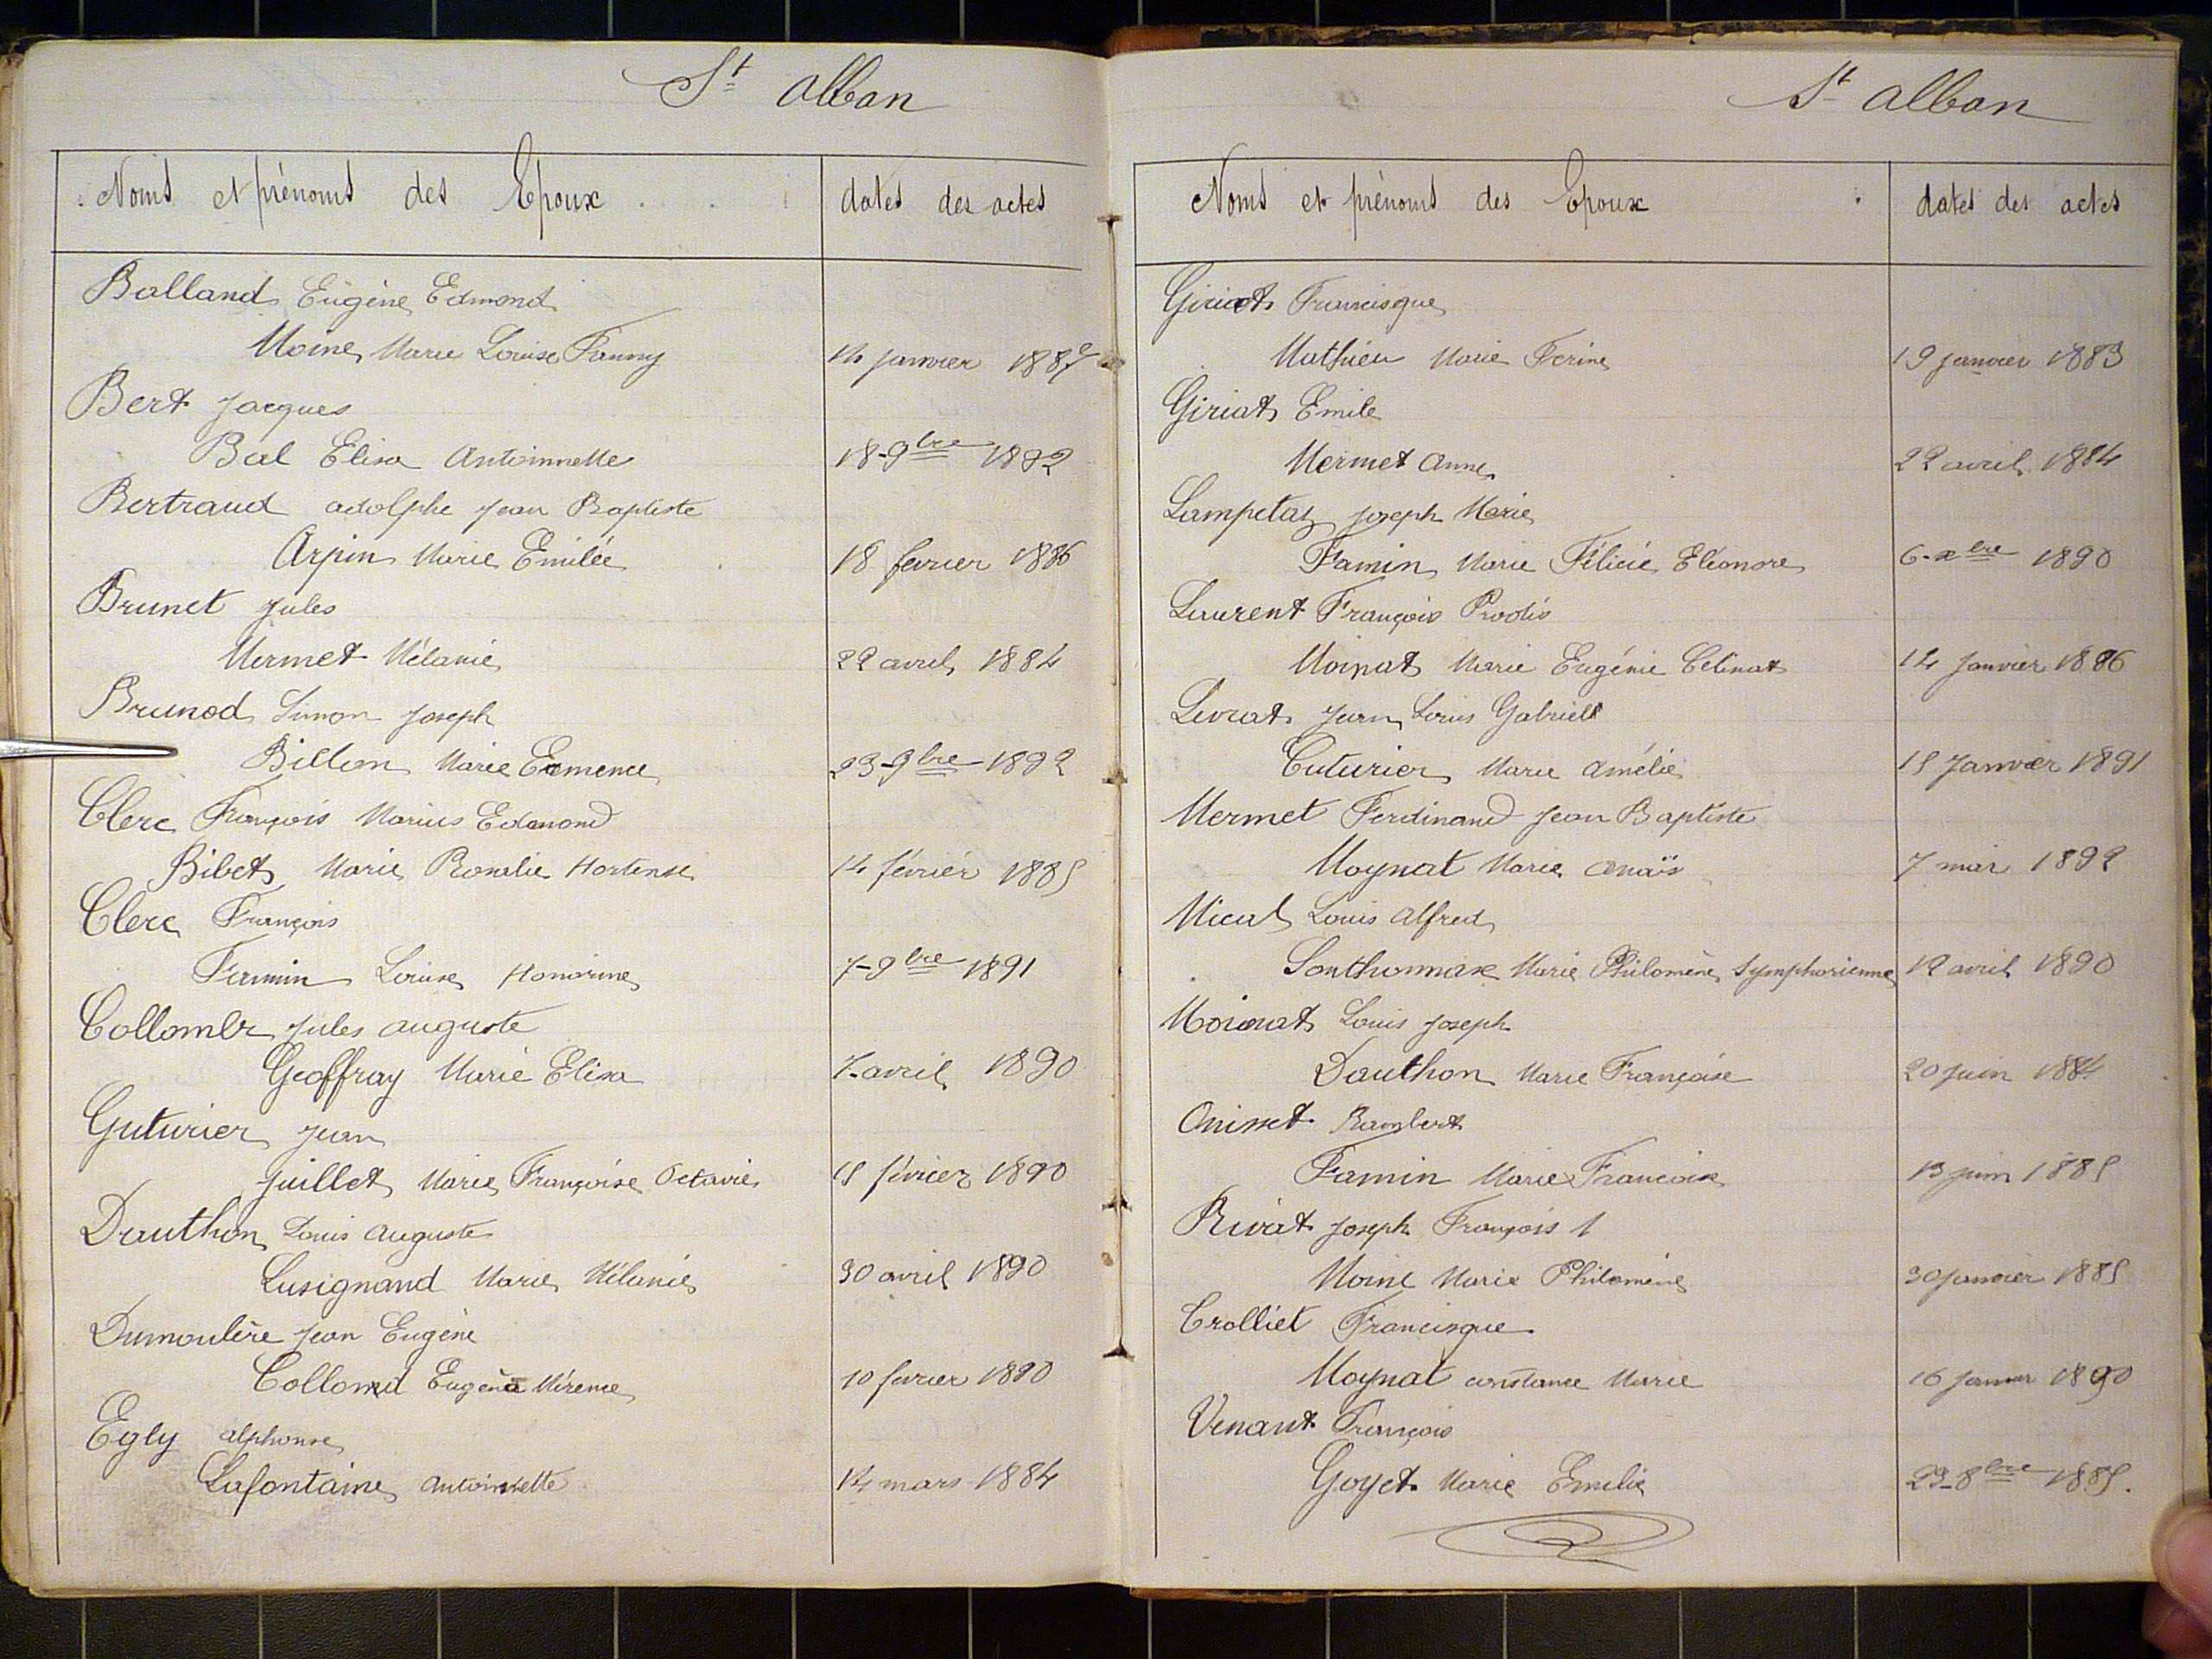 St Alban
Noms et prénoms des Epoux dates des actes
Balland Eugène Edmond
Moine Marie Louise Fanny 14 janvier
Bert Jacques
Bal Elisa Antoinnette 18-9bre 1892
Bertraud adolphe Jean Baptiste
Arpin Marie Emilée 18 fevrier 1886
Brunet Jules
Mermet Mélanie 22 avril 1884
Brunod Simon Joseph
Billon Marie 23-9bre 1892
Clerc François Marius Edmond
Bibet Marie Rosalie Hortense 14 février 1885
Clerc François
Famin Louise Honorine 7-9bre 1891
Collomb Jules auguste
Geoffray Marie Elisa 7 avril 1890
Guturier Jean
Juillet Marie Françoise Octavie 15 février 1890
Dauthon Louis Auguste
Lusignand Marie Mélanie 30 avril 1890
Dumoulère Jean Eugène
Collomb Mérence 10 fevrier 1890
Egly alphonse
Lafontaine Antoinette 14 mars 1884
St Alban
Noms et prénoms des Epoux dates des actes
Giriat Francisque
Mathieu Marie Ferine 19 janvier 1883
Giriat Emile
Mermet Anne 22 avril 1884
Lampetaz Joseph Marie
Famin Marie Félicie Eléonore 6-xbre 1890
Laurent François Prodis
Moinat Marie Eugénie Celinat 14 Janvier 1886
Levrat Jean Louis Gabriel
Cuturier Marie Amélie 15 Janvier 1891
Mermet Ferdinand Jean Baptiste
Moynat Marie Anaïs 7 mai 1892
Micul Louis Alfred
Sonthonnax Marie Philomène Symphorienne 12 avril 1890
Moinat Louis Joseph
Dauthon Marie Françoise 20 Juin 1884
Onisset Rambert
Famin Marie Francoise 13 juin 1885
Rivat Joseph François
Moine Marie Philomène 30 janvier 1885
Crolliet Francisque
Moynat constance Marie 16 janvier 1890
Venant François
Goyet Marie Emilie 23-8bre 1885.